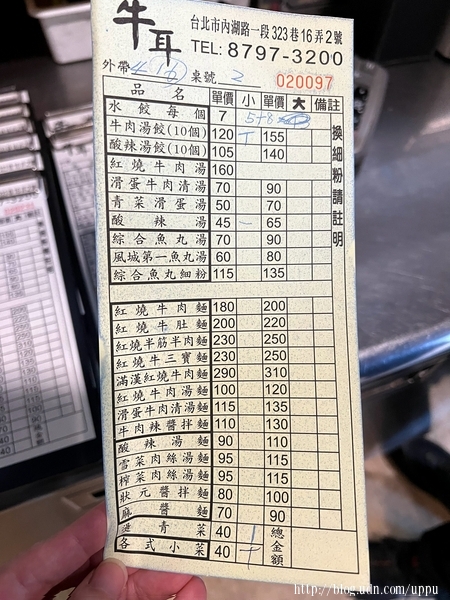 牛耳
台北市內湖路一段323巷16弄2號
TEL: 8797-3200
外帶 桌號 2
020097
品名 單價 小 單價 大 備註
水餃每個 7 5+8
牛肉湯餃(10個) 120 一 155
酸辣湯餃(10個) 105 140
紅燒牛肉湯 160
滑蛋牛肉清湯 70 90
青菜滑蛋湯 50 70
酸辣湯 45 一 65
綜合魚丸湯 70 90
風城第一魚丸湯 60 80
綜合魚丸細粉 115 135
換細粉請註明
紅燒牛肉麵 180 200
紅燒牛肚麵 200 220
紅燒半筋半肉麵 230 250
紅燒牛三寶麵 230 250
滿漢紅燒牛肉麵 290 310
紅燒牛肉湯麵 100 120
滑蛋牛肉清湯麵 115 135
牛肉辣醬拌麵 110 130
酸辣湯麵 90 110
雪菜肉絲湯麵 95 115
榨菜肉絲湯麵 95 115
狀元醬拌麵 80 100
麻醬麵 70 90
燙青菜 40
各式小菜 40
總金額
http://blog.udn.com/uppu